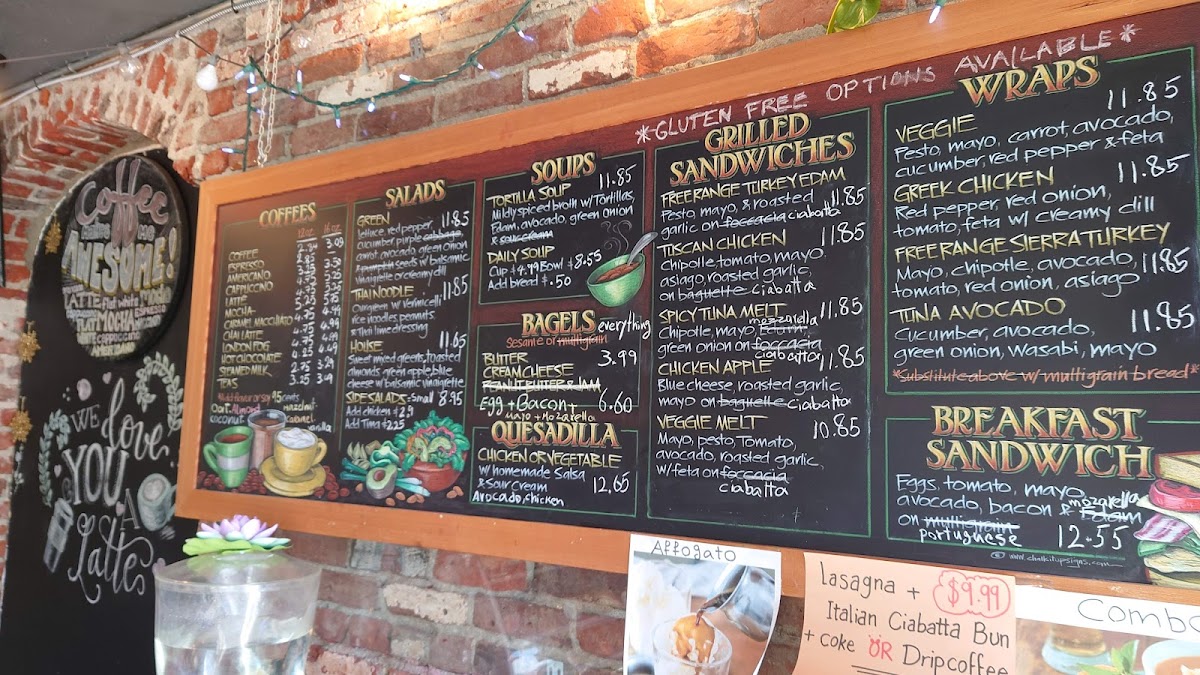 *GLUTEN FREE OPTIONS AVAILABLE*
Coffee
AWESOME!
LATTE flat white Mocha
MOCHA
WE
love
YOU
A
latte
COFFEES
12oz 16oz
COFFEE
ESPRESSO
AMERICANO
CAPPUCCINO
LATTÉ
MOCHA
CARAMEL MACCHIATO
CHAI LATTE
LONDON FOG
HOT CHOCOLATE
STEAMED MILK
TEAS 3.25
Add flavor or soy 95cents
Oat. Almond
coconut
hazelnut
vanilla
SALADS
GREEN 11.85
lettuce, red pepper,
cucumber, purple cabbage
carrot, avocado, green onion
& pumpkin seeds w/ balsamic
vinaigrette or creamy dill
THAI NOODLE 11.85
Organic greens w/ Vermicelli
rice noodles, peanuts
& thai lime dressing
HOUSE 11.65
Sweet mixed greens, toasted
almonds, green apple, blue
cheese w/ balsamic vinaigrette
SIDE SALADS-Small 8.95
Add chicken $2.91
Add Tuna $2.25
SOUPS
TORTILLA SOUP 11.85
Mildly spiced broth w/ Tortillas,
Edam, avocado, green onion
& sour cream
DAILY SOUP
Cup $4.99 Bowl $8.55
Add bread $.50
BAGELS everything
Sesame or multigrain
BUTTER 3.99
CREAM CHEESE
PEANUT BUTTER & JAM
Egg + Bacon + 6.60
mayo + Mozarella
QUESADILLA
CHICKEN OR VEGETABLE
w/ homemade Salsa 12.65
& Sour Cream
Avocado, chicken
GRILLED
SANDWICHES
FREE RANGE TURKEY EDAM
Pesto, mayo, & roasted 11.85
garlic on foccacia ciabatta
TUSCAN CHICKEN 11.85
chipotle, tomato, mayo,
asiago, roasted garlic,
on baguette Ciabatta
SPICY TUNA MELT 11.85
mozarella
Chipotle, mayo, Edam,
green onion on foccacia
ciabatta
CHICKEN APPLE 11.85
Blue cheese, roasted garlic,
mayo on baguette Ciabatta
VEGGIE MELT 10.85
Mayo, pesto, Tomato,
avocado, roasted garlic,
w/ feta on foccacia
ciabatta
WRAPS
VEGGIE 11.85
Pesto, mayo, carrot, avocado,
cucumber, red pepper & feta
GREEK CHICKEN 11.85
Red pepper, red onion,
tomato, feta w/ creamy dill
FREE RANGE SIERRA TURKEY
Mayo, chipotle, avocado, 11.85
tomato, red onion, asiago
TUNA AVOCADO 11.85
Cucumber, avocado,
green onion, Wasabi, mayo
*Substitute above w/ multigrain bread*
BREAKFAST
SANDWICH
Eggs, tomato, mayo,
mozarella
avocado, bacon & Edam
on multigrain
portuguese 12.55
© www.chalkitupsigns.com
Affogato
Lasagna + $9.99
Italian Ciabatta Bun
+ coke OR Dripcoffee
Combo